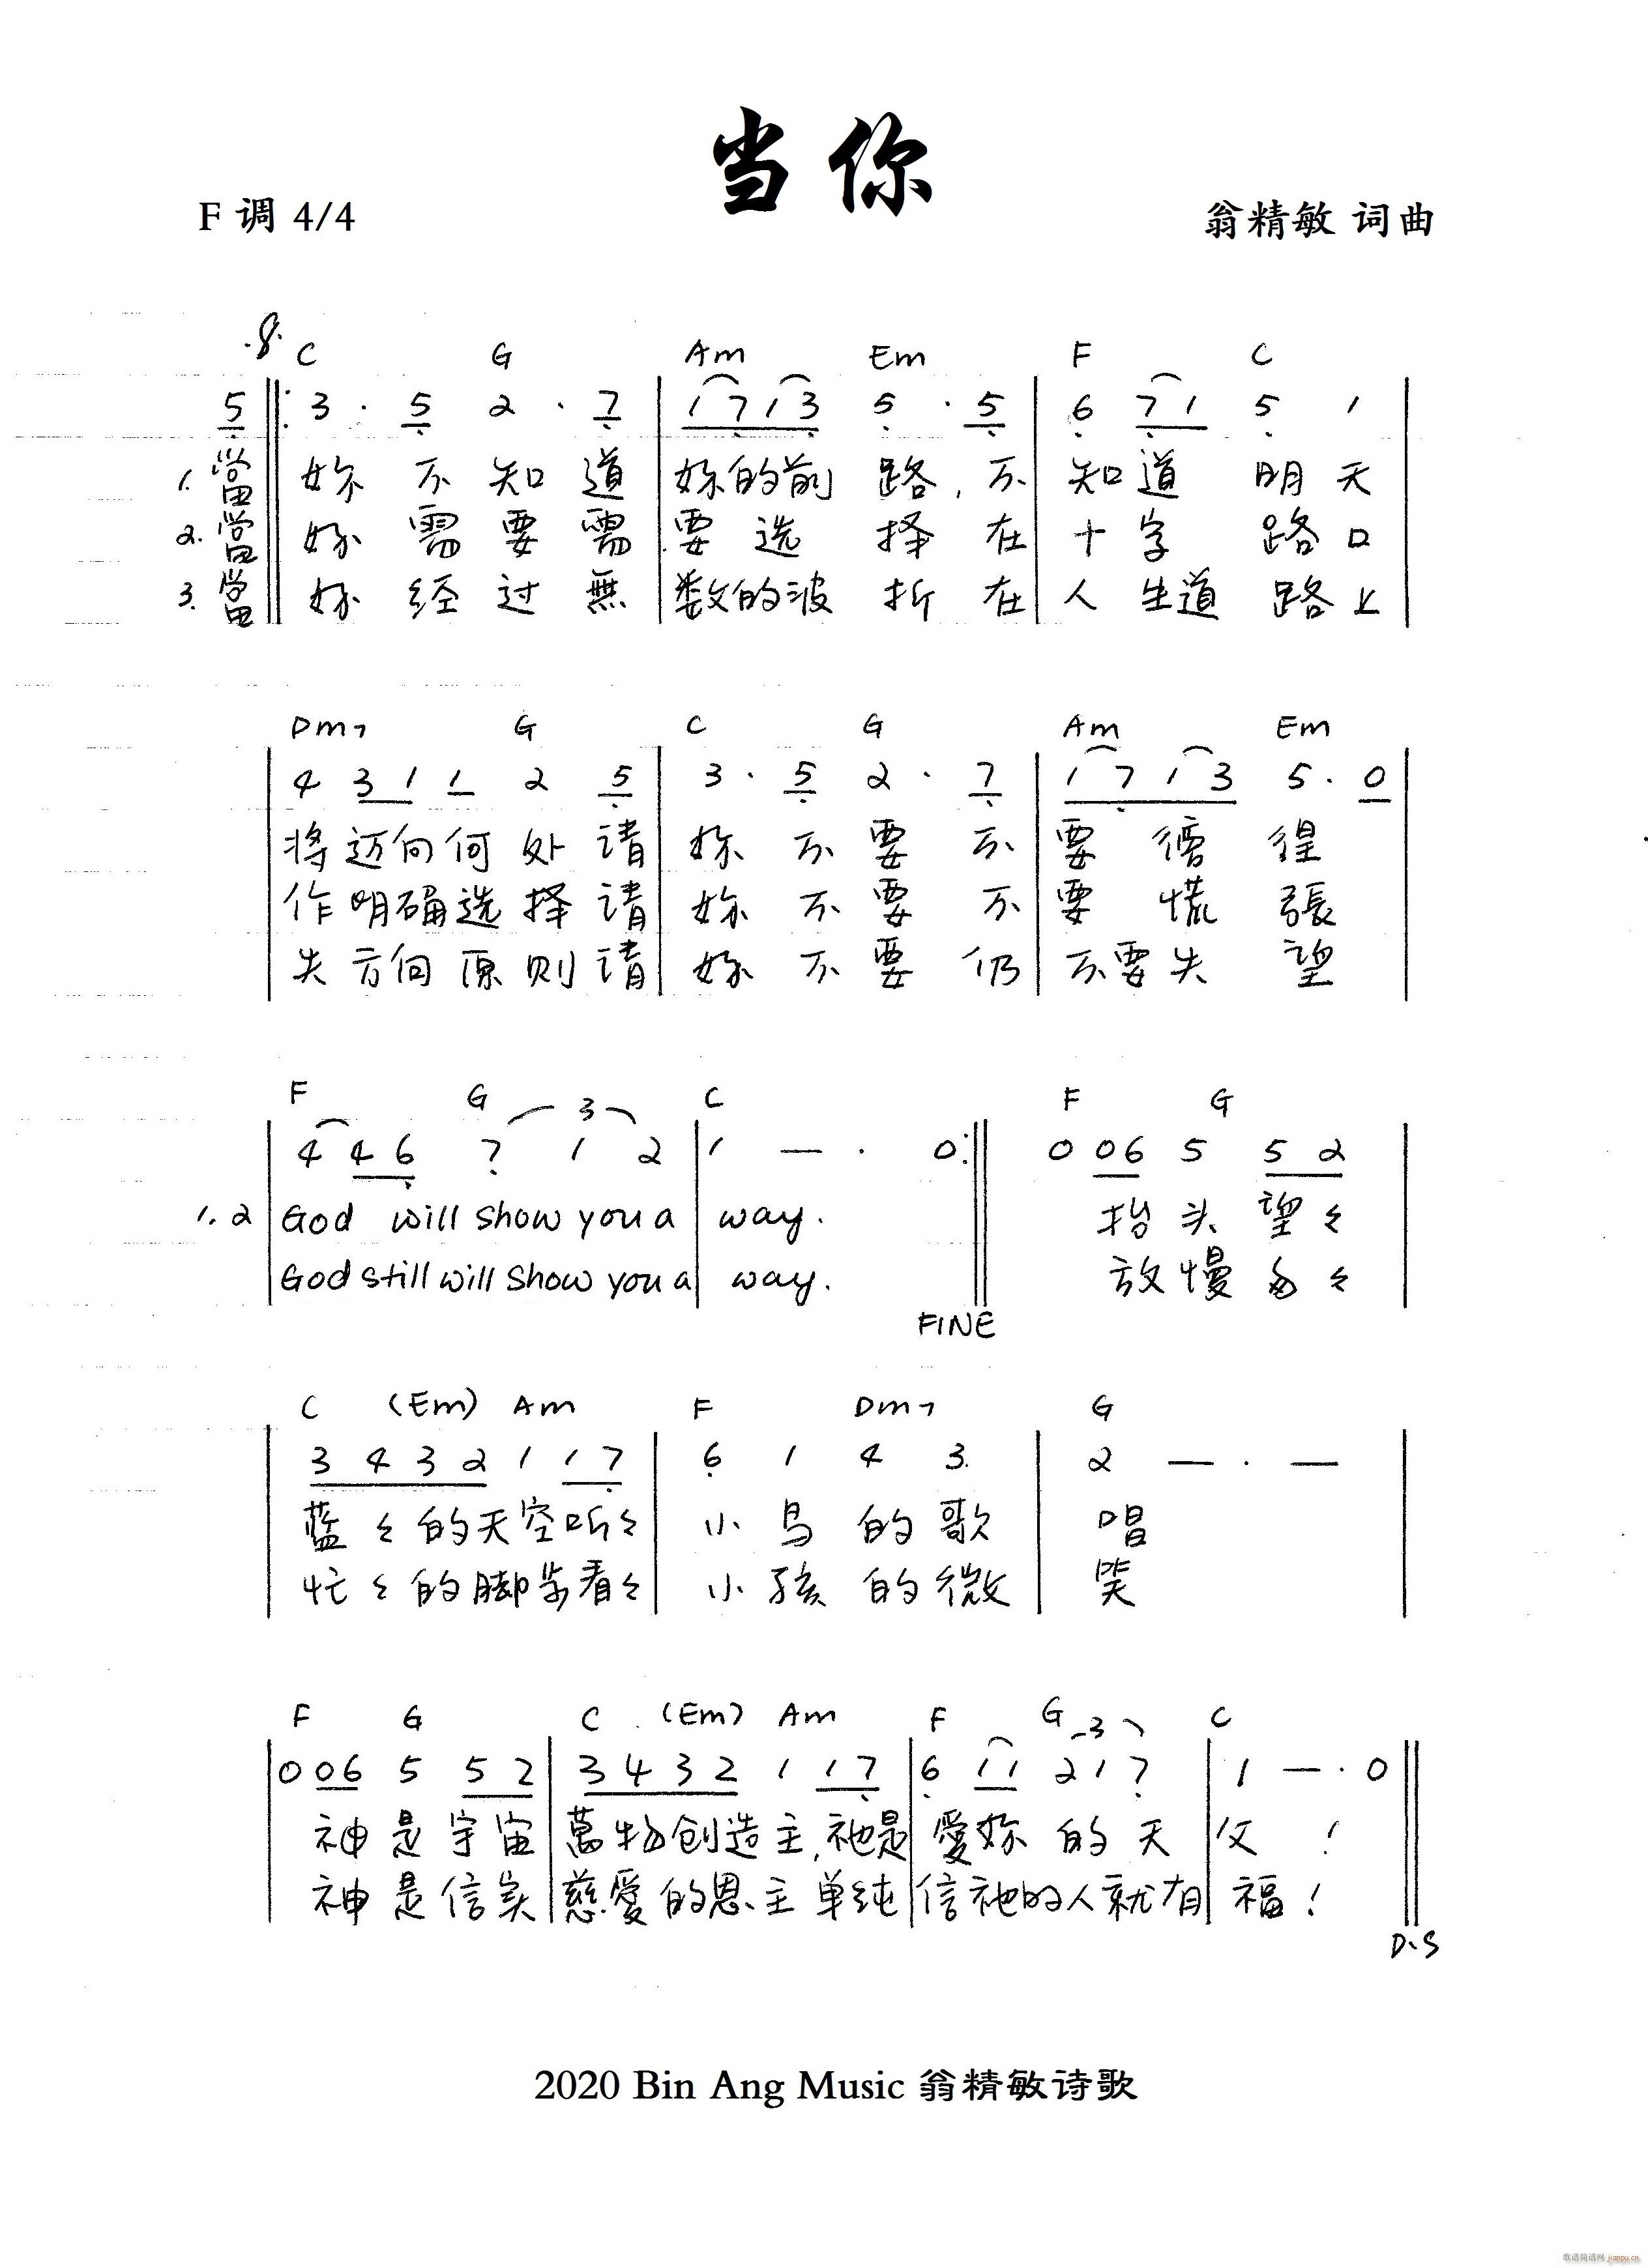 当你
F 调 4/4
翁精敏 词曲
C G Am Em F C
5 3 · 5 2 · 7 1 7 1 3 5 · 5 6 7 1 5 1
1. 當 妳 不 知 道 妳的前 路, 不 知道 明天
2. 當 妳 需 要 需 要 选 择 在 十字 路口
3. 當 妳 经 过 無 数的波 折 在 人 生道 路上
Dm7 G C G Am Em
4 3 1 1 2 5 3 · 5 2 · 7 1 7 1 3 5 · 0
将迈向何处请 妳 不 要 不 要 徬 徨
作明确选择请 妳 不 要 不 要 慌 張
失方向原则请 妳 不 要 仍 不要失 望
F G 3 C F G
4 4 6 7 1 2 1 — · 0 0 0 6 5 5 2
1. 2 God will show you a way. 抬头望々
God still will show you a way. 放慢匆々
FINE
C (Em) Am F Dm7 G
3 4 3 2 1 1 7 6 1 4 3 2 — · —
蓝々的天空听々 小鸟的歌 唱
忙々的脚步看々 小孩的微 笑
F G C (Em) Am F G 3 C
0 0 6 5 5 2 3 4 3 2 1 1 7 6 1 1 2 1 7 1 — · 0
神是宇宙 萬物创造主,祂是 愛妳的天 父!
神是信实 慈愛的恩主单纯 信祂的人就有 福!
D.S
2020 Bin Ang Music 翁精敏诗歌
歌谱简谱网 jianpu.cn